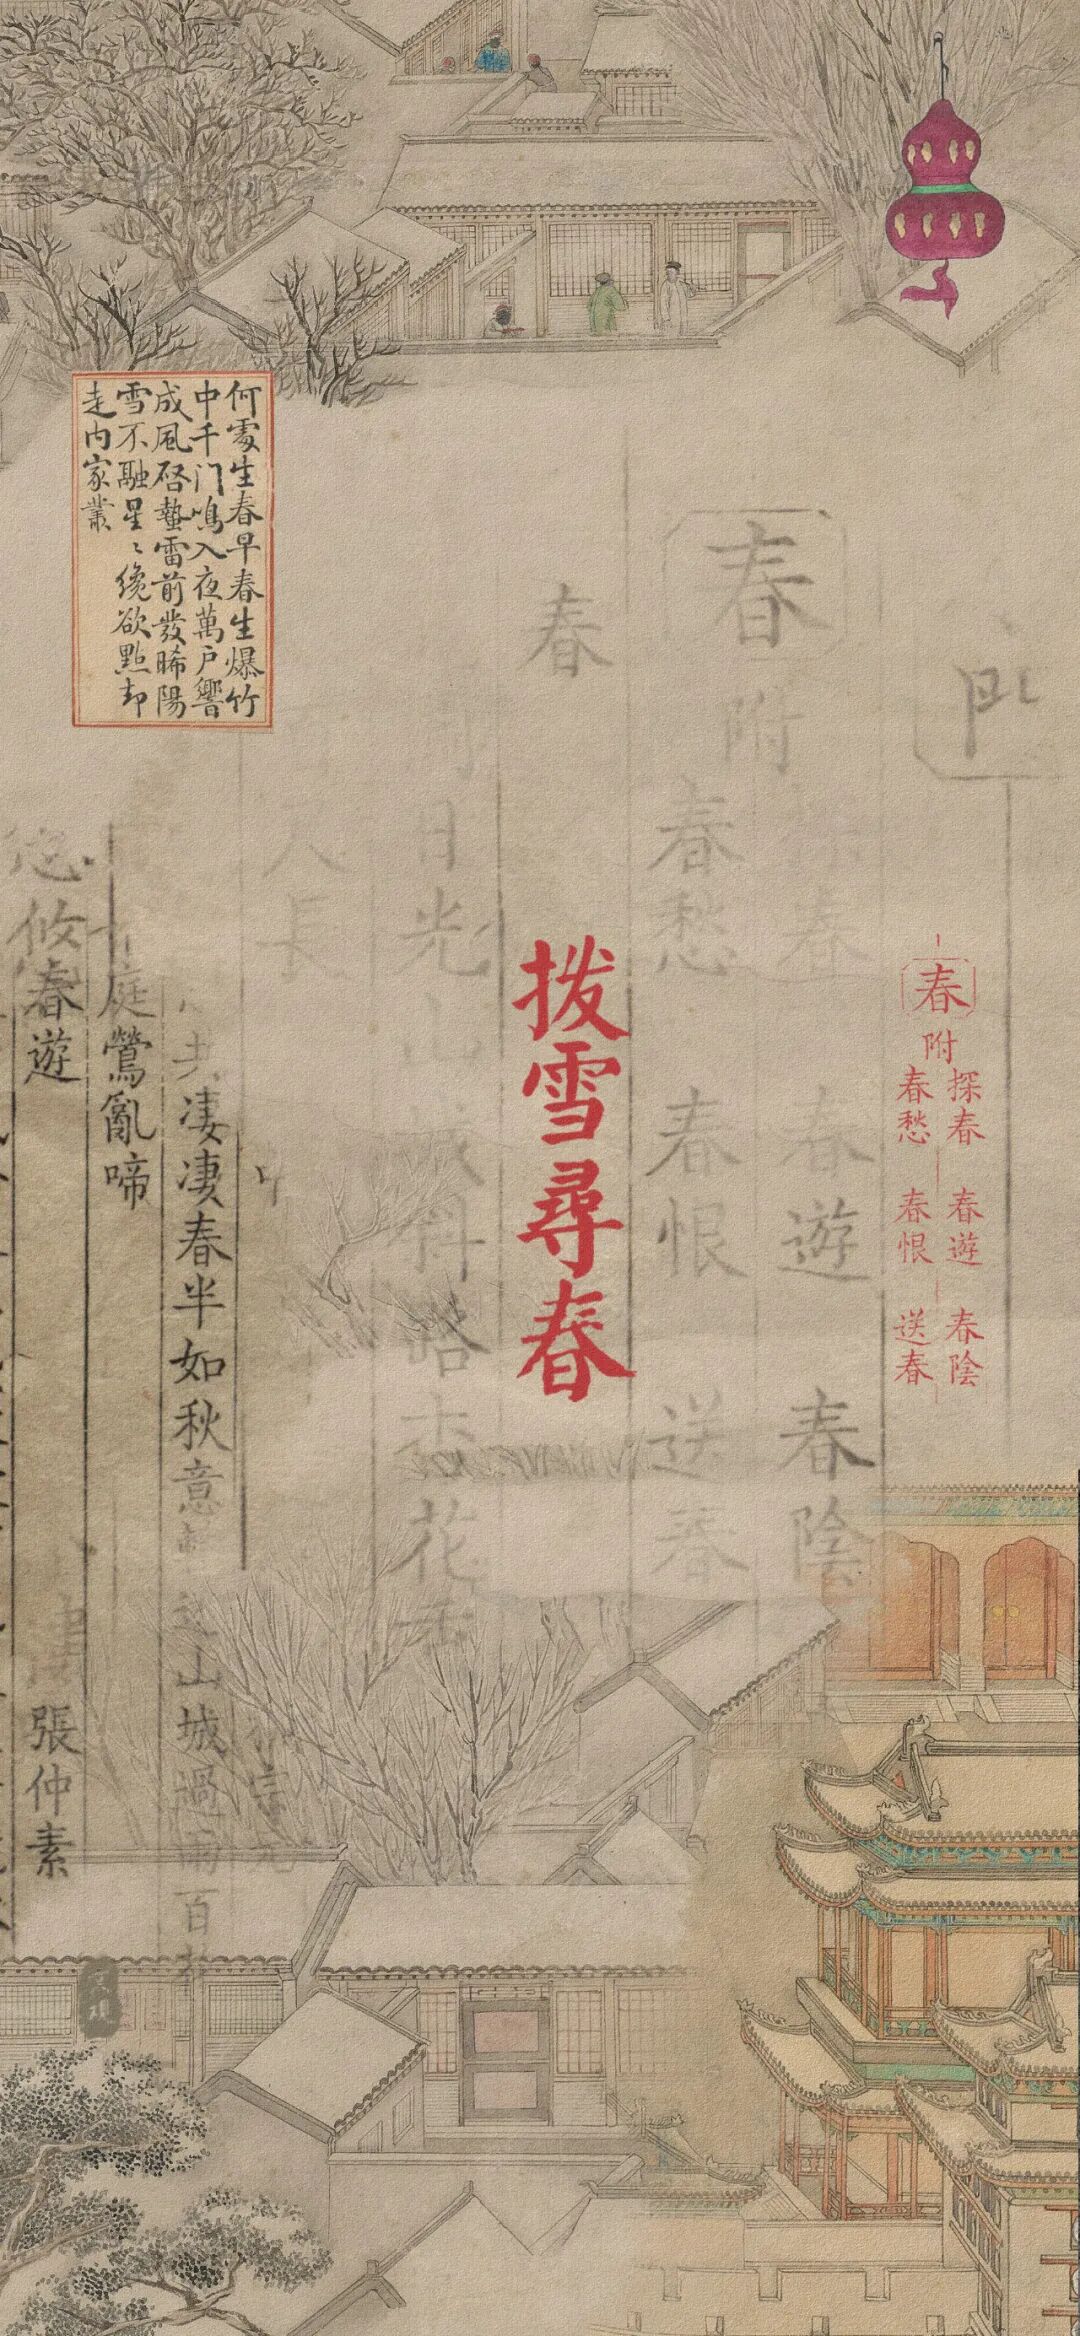 何處生春早春生爆竹
中千门鳴入夜萬户響
成風啓蟄雷前發晞陽
雪不融星〻纔欲點却
走内家叢
春
附
探春 春遊 春陰
春愁 春恨 送春
拨雪尋春
春
附
春遊 春陰
春愁 春恨 送春
春
日光
杏花
淒淒春半如秋意
山城過雨百
庭鶯亂啼
春遊
張仲素